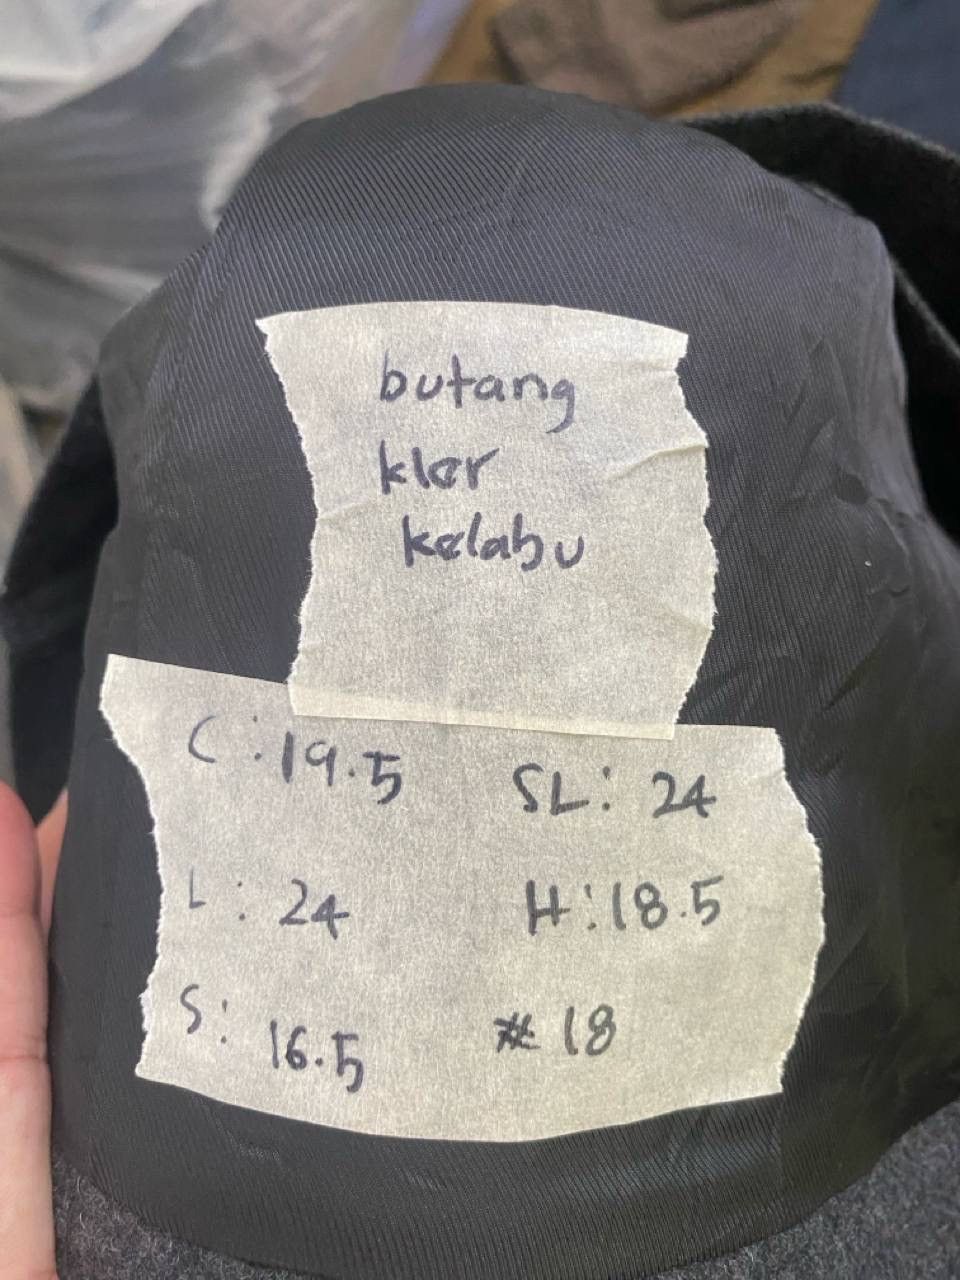 butang
kler
kelabu
C : 19.5
SL : 24
L : 24
H : 18.5
S : 16.5
# 18